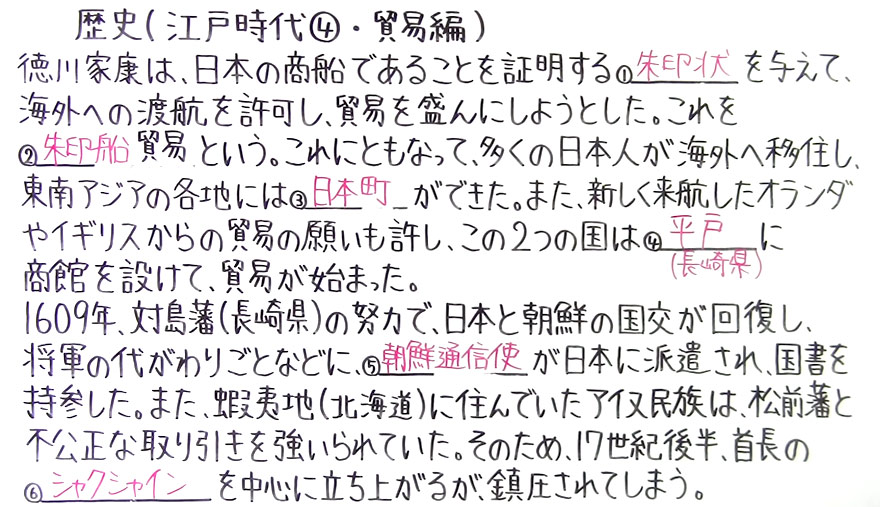 歴史(江戸時代④・貿易編)
徳川家康は、日本の商船であることを証明する①朱印状を与えて、
海外への渡航を許可し、貿易を盛んにしようとした。これを
②朱印船貿易という。これにともなって、多くの日本人が海外へ移住し、
東南アジアの各地には③日本町ができた。また、新しく来航したオランダ
やイギリスからの貿易の願いも許し、この2つの国は④平戸に
(長崎県)
商館を設けて、貿易が始まった。
1609年、対島藩(長崎県)の努力で、日本と朝鮮の国交が回復し、
将軍の代がわりごとなどに、⑤朝鮮通信使が日本に派遣され、国書を
持参した。また、蝦夷地(北海道)に住んでいたアイヌ民族は、松前藩と
不公正な取り引きを強いられていた。そのため、17世紀後半、首長の
⑥シャクシャインを中心に立ち上がるが、鎮圧されてしまう。